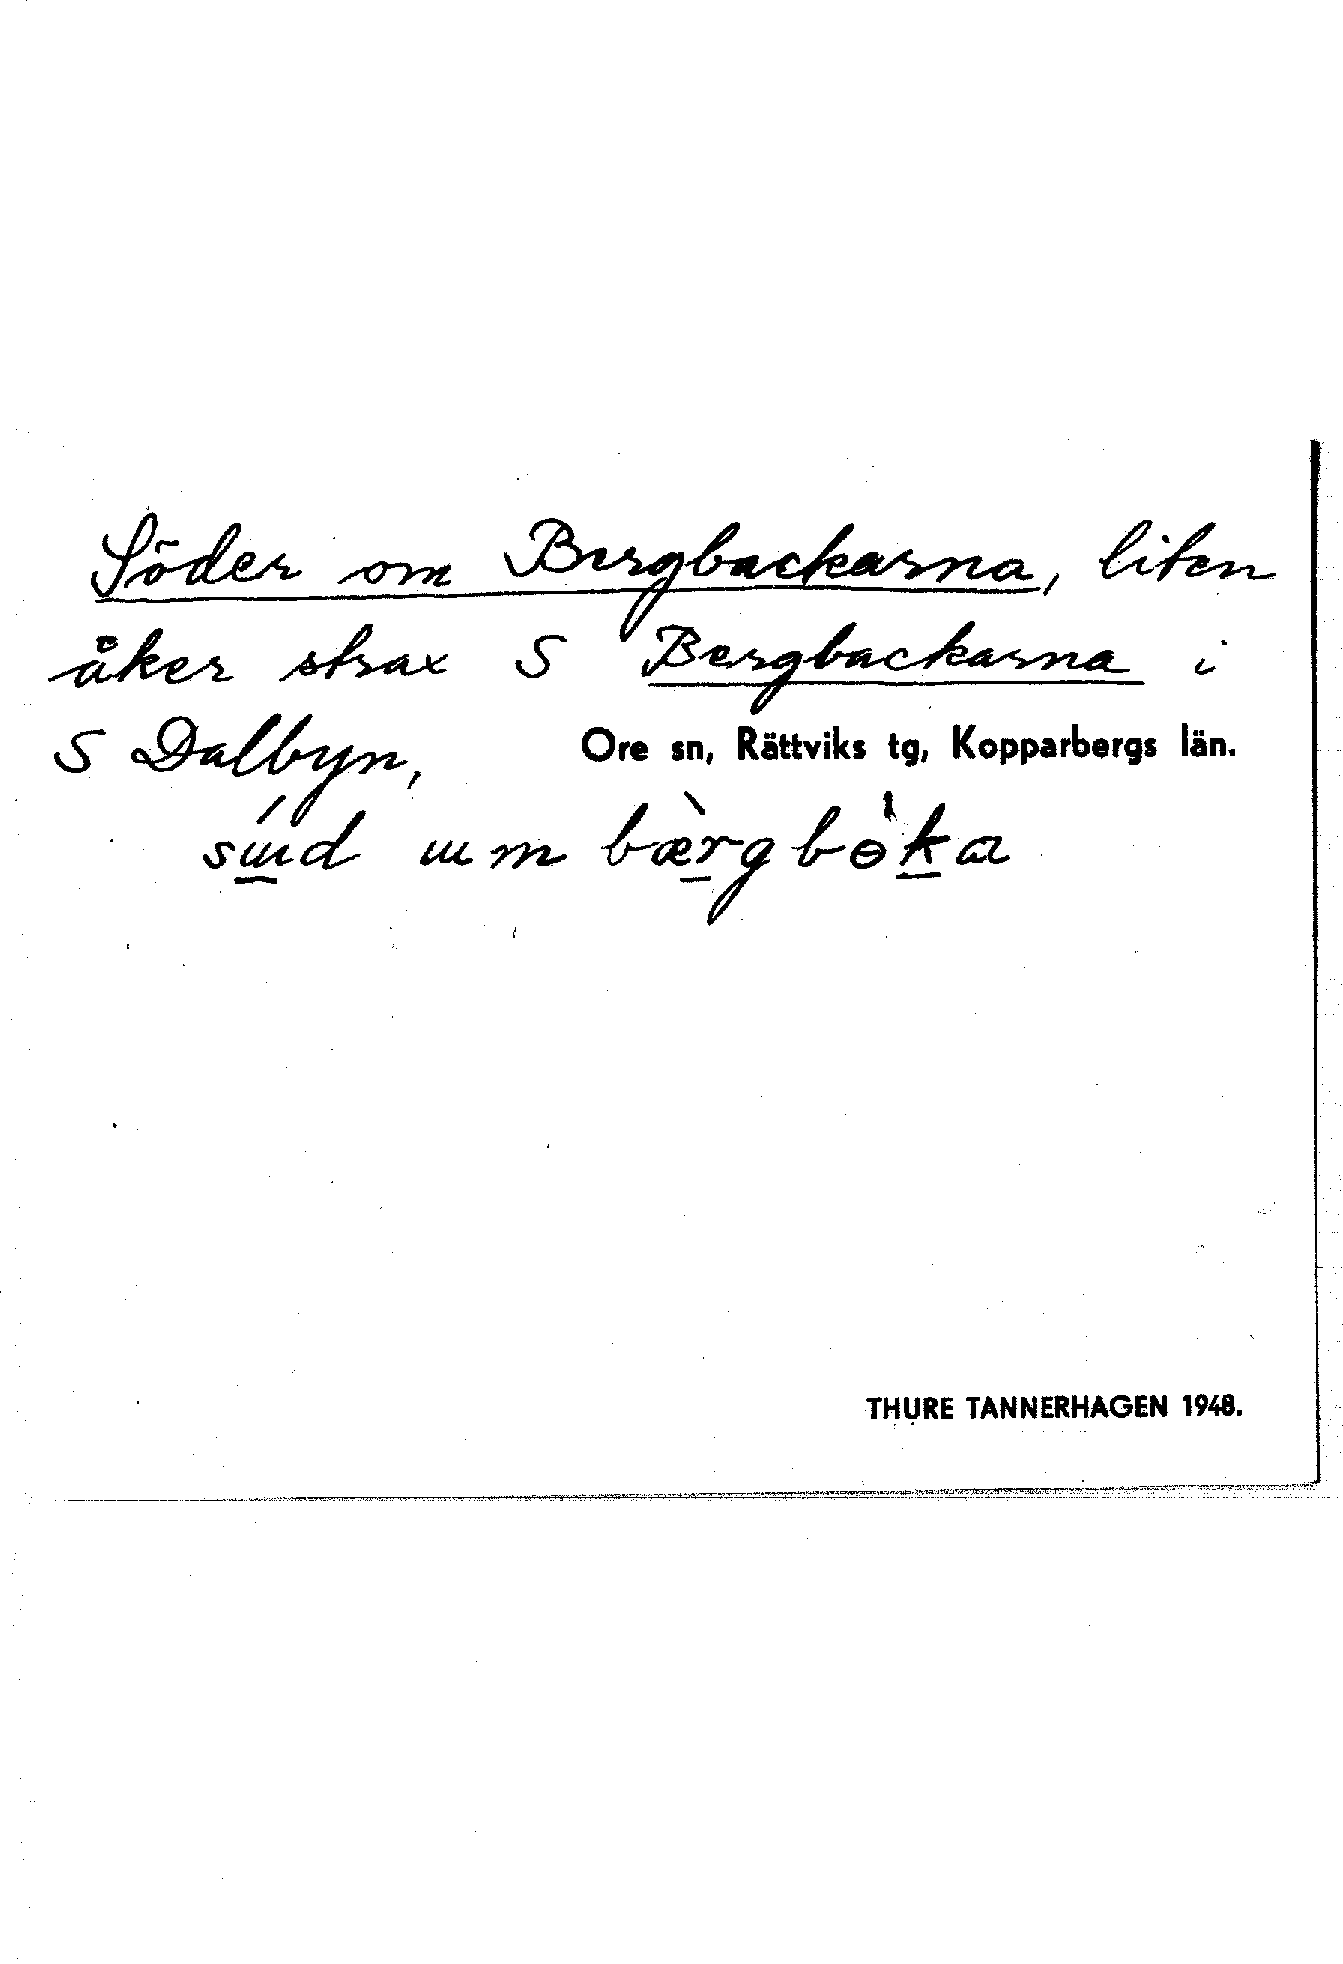 Söder om Bergbackarna, liten
åker strax S Bergbackarna i
S Dalbyn, Ore sn, Rättviks tg, Kopparbergs län.
um
THURE TANNERHAGEN 1948.